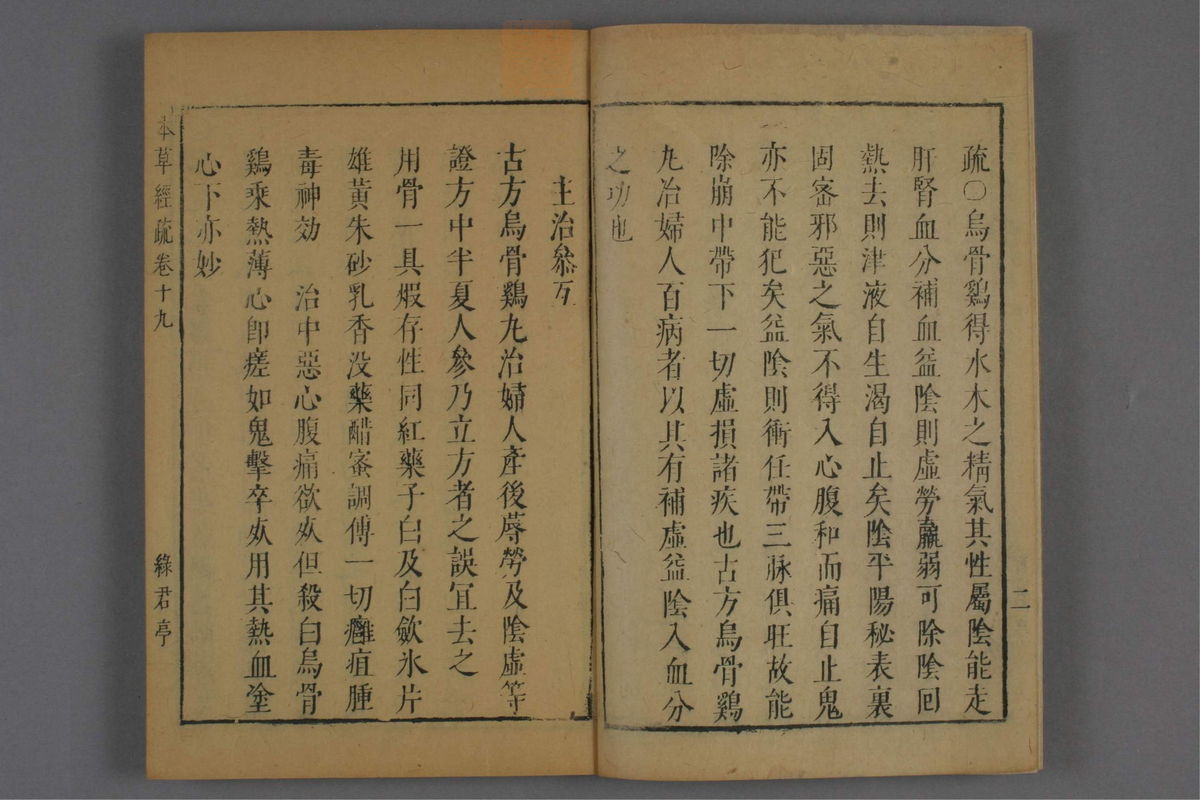 疏〇烏骨鷄得水木之精氣其性屬陰能走
肝腎血分補血益陰則虛勞羸弱可除陰囘
熱去則津液自生渴自止矣陰平陽秘表裏
固密邪惡之氣不得入心腹和而痛自止鬼
亦不能犯矣益陰則衝任帶三脉俱旺故能
除崩中帶下一切虛損諸疾也古方烏骨鷄
丸治婦人百病者以其有補虛益陰入血分
之功也
二
主治叅互
古方烏骨鷄丸治婦人產後蓐勞及陰虛等
證方中半夏人參乃立方者之誤冝去之
用骨一具煆存性同紅藥子白及白歛氷片
雄黃朱砂乳香没藥醋蜜調傅一切癰疽腫
毒神効　治中惡心腹痛欲𣦸但殺白烏骨
鷄乘熱薄心卽瘥如鬼擊卒𣦸用其熱血塗
心下亦妙
本草經疏卷十九
綠君亭